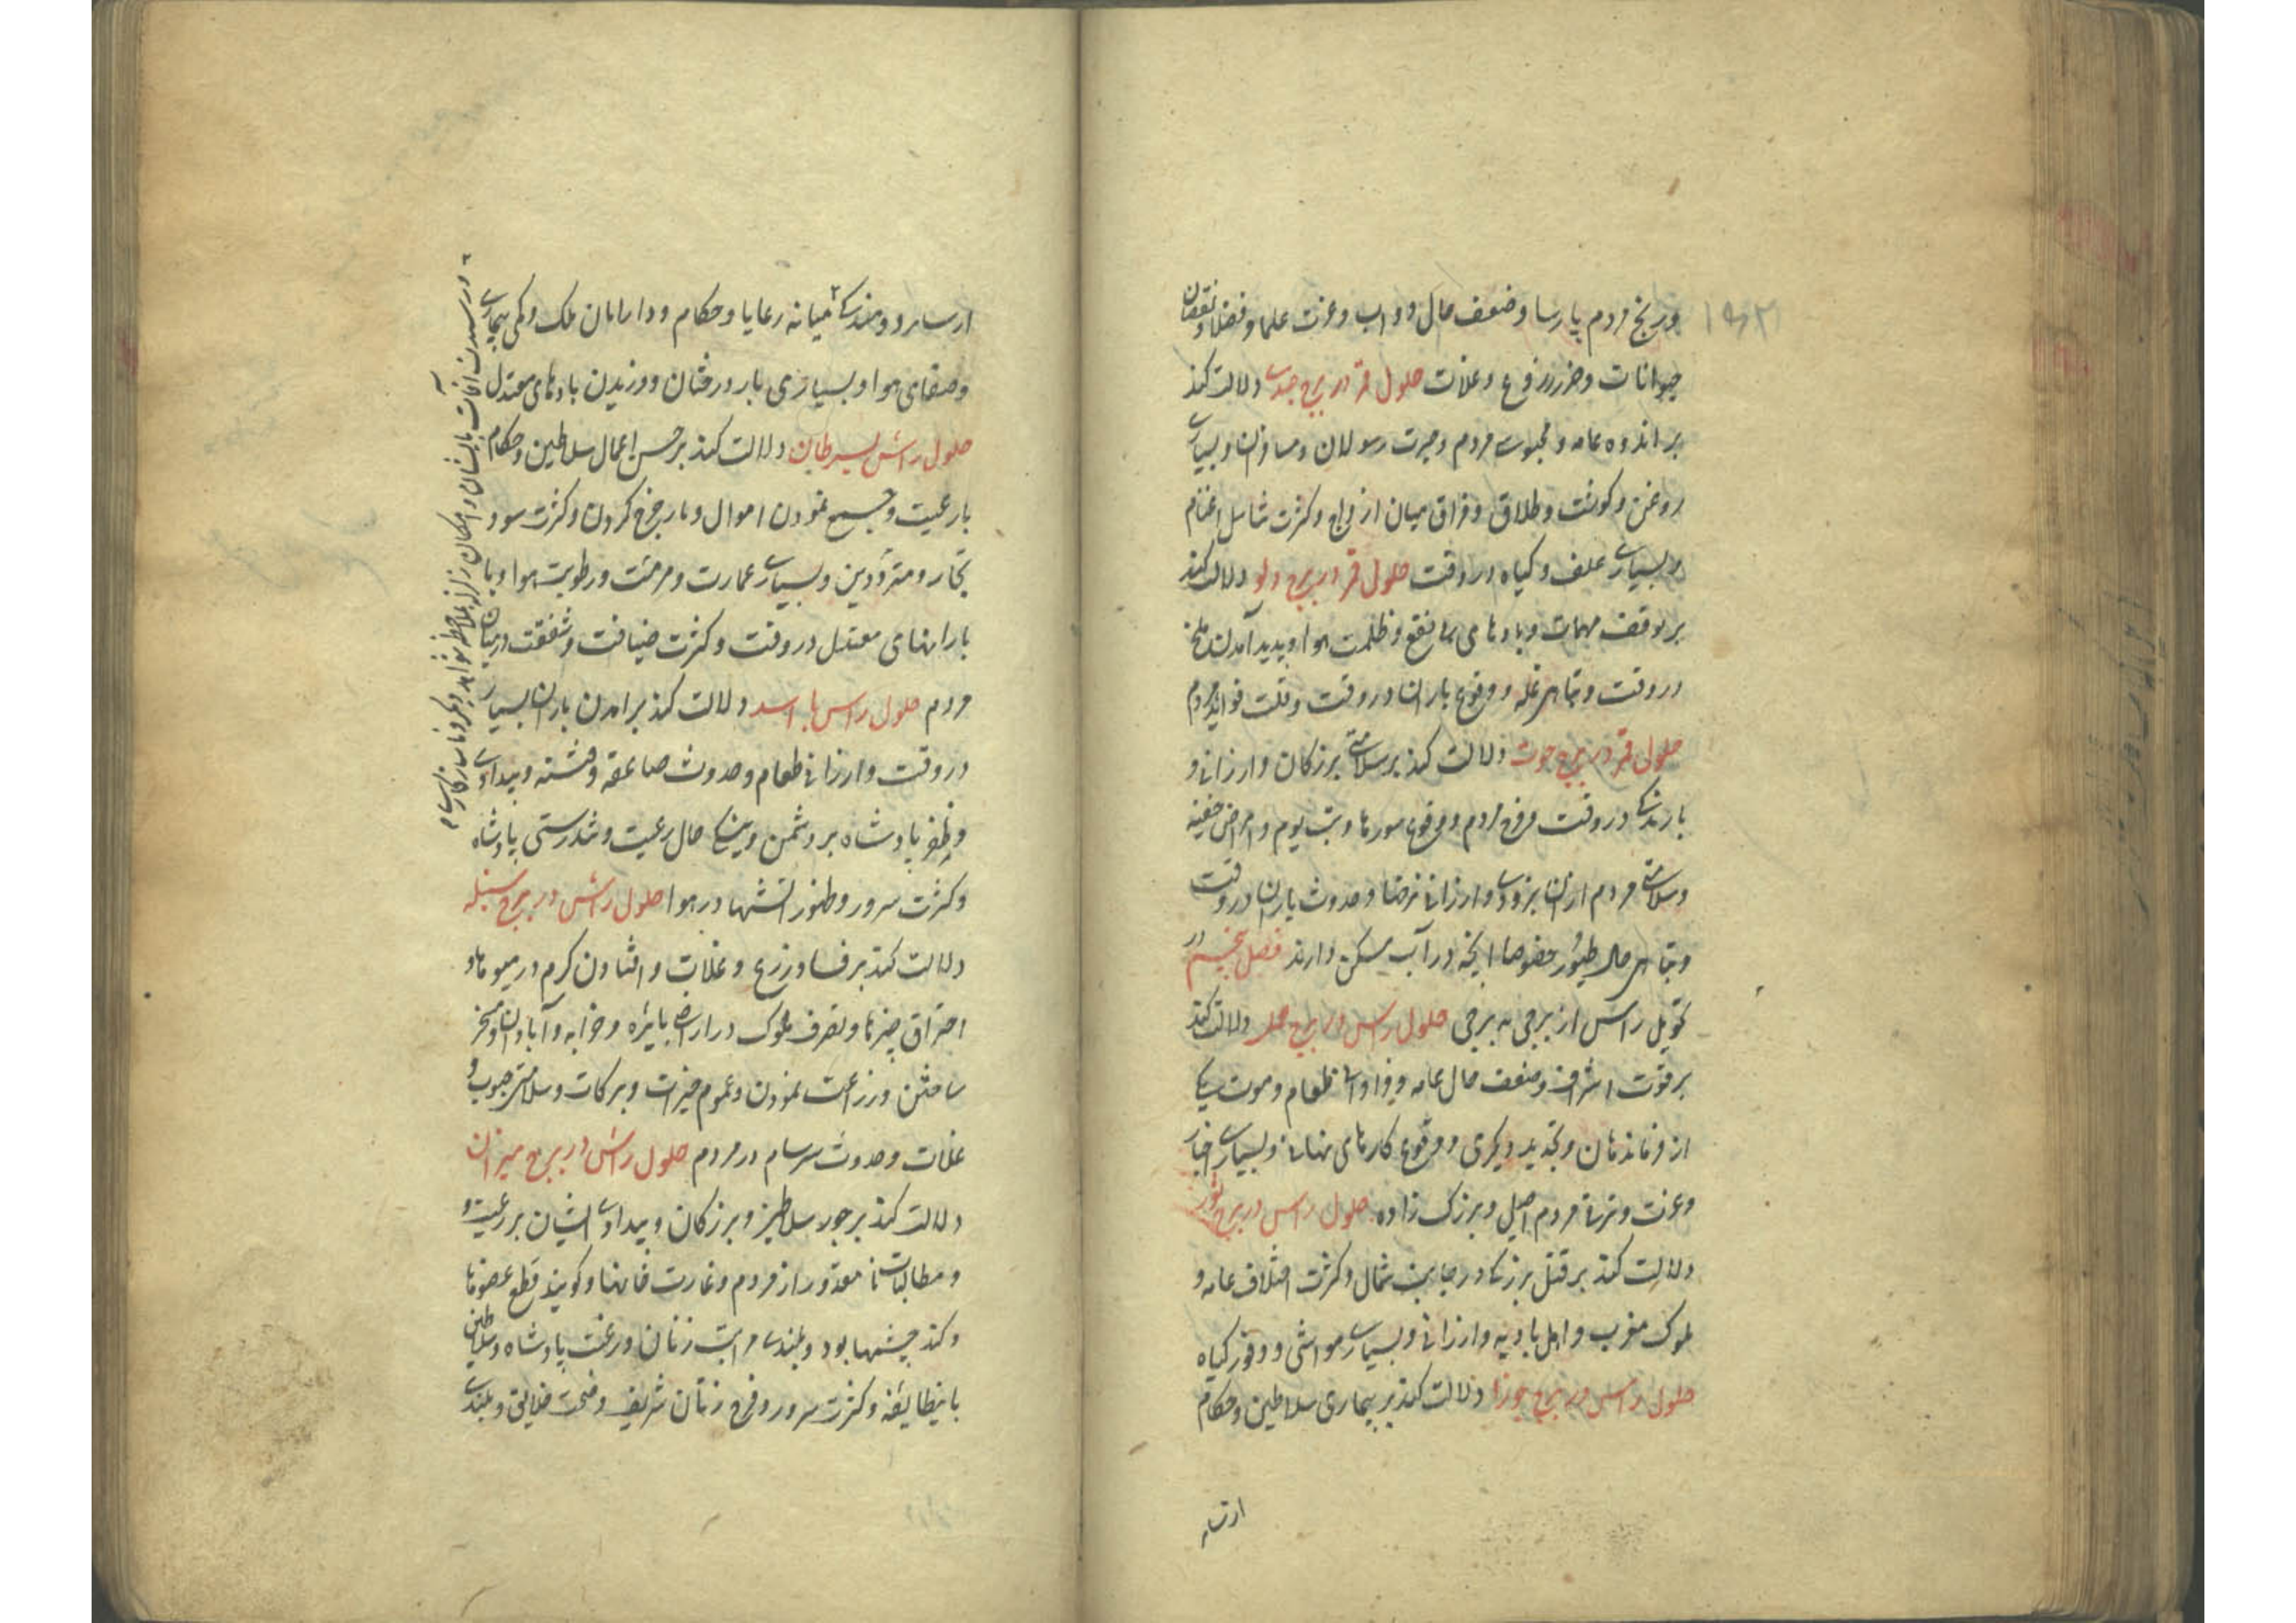 ورنج مردم پارسا و ضعف حال دواب و عزت علما و فضلا و نقصان
حیوانات و ضرر زروع و غلات حلول قمر در برج جدی دلالت کند
بر اندوه عامه و محبوسی مردم و حیرت رسولان و مسافران و بسیاری
روغن و گوشت و طلاق و فراق میان ازواج و کثرت تناسل اغنام
و بسیاری علف و گیاه در وقت حلول قمر در برج دلو دلالت کند
بر توقف مهمات و بادهای بی نفع و ظلمت هوا و پدید آمدن ملخ
در وقت و تباهی غله و وقوع باران در وقت و قلت فواید مردم
حلول قمر در برج حوت دلالت کند بر سلامتی بزرگان و ارزانی و
بارندگی در وقت و فرح مردم و وقوع سورها و تب یوم و امراض خفیفه
و سلامتی مردم از آن بزودی و ارزانی نرخها و حدوث باران در وقت
و تباهی حال طیور خصوصا آنچه در آب مسکن دارند فصل پنجم در
تحویل راس از برجی به برجی حلول راس در برج حمل دلالت کند
بر قوت اشراف و ضعف حال عامه و فراوانی طعام و موت یکی
از فرماندهان و تجدید دیگری و وقوع کارهای نهانی و بسیاری اخبار
و عزت و ترقی مردم اصیل و بزرگ زاده حلول راس در برج ثور
دلالت کند بر قتل بزرگی در جانب شمال و کثرت اختلاف عامه و
ملوک مغرب و اهل بادیه و ارزانی و بسیاری مواشی و وفور گیاه
حلول راس در برج جوزا دلالت کند بر بیماری سلاطین و حکام
میانه رعایا و حکام و دارایان ملک و کمی بیماری
و صفای هوا و بسیاری بار درختان و وزیدن بادهای معتدل
حلول راس بسرطان دلالت کند بر حسن اعمال سلاطین و حکام
با رعیت و جمع نمودن اموال و باز خرج کردن و کثرت سود
تجار و مترددین و بسیاری عمارت و مرمت و رطوبت هوا و
بارانهای معتدل در وقت و کثرت ضیافت و شفقت در میان
مردم حلول راس باسد دلالت کند بر آمدن باران بسیار
در وقت و ارزانی طعام و حدوث صاعقه و فتنه و بیدادی
و ظفر پادشاه بر دشمن و نیکی حال رعیت و تندرستی پادشاه
و کثرت سرور و ظهور آتشها در هوا حلول راس در برج سنبله
دلالت کند بر فساد زرع و غلات و افتادن کرم در میوها و
احتراق چیزها و تصرف ملوک در اراضی بایره و خرابه و آبادان و مسخر
ساختن و زراعت نمودن و عموم خیرات و برکات و سلامتی حبوب و
غلات و حدوث سرسام در مردم حلول راس در برج میزان
دلالت کند بر جور سلاطین و بزرگان و بیدادی ایشان بر رعیت و
و مطالبات نا مقدور از مردم و غارت خانها و گویند قطع عضوها
و کند چشمها بود و بلندی مراتب زنان و رغبت پادشاه و سلاطین
باینطایفه و کثرت سرور و فرح زنان شریف و صحت خلایق و بلندی
و رسیدن آفات بانسان و امکان زلزله